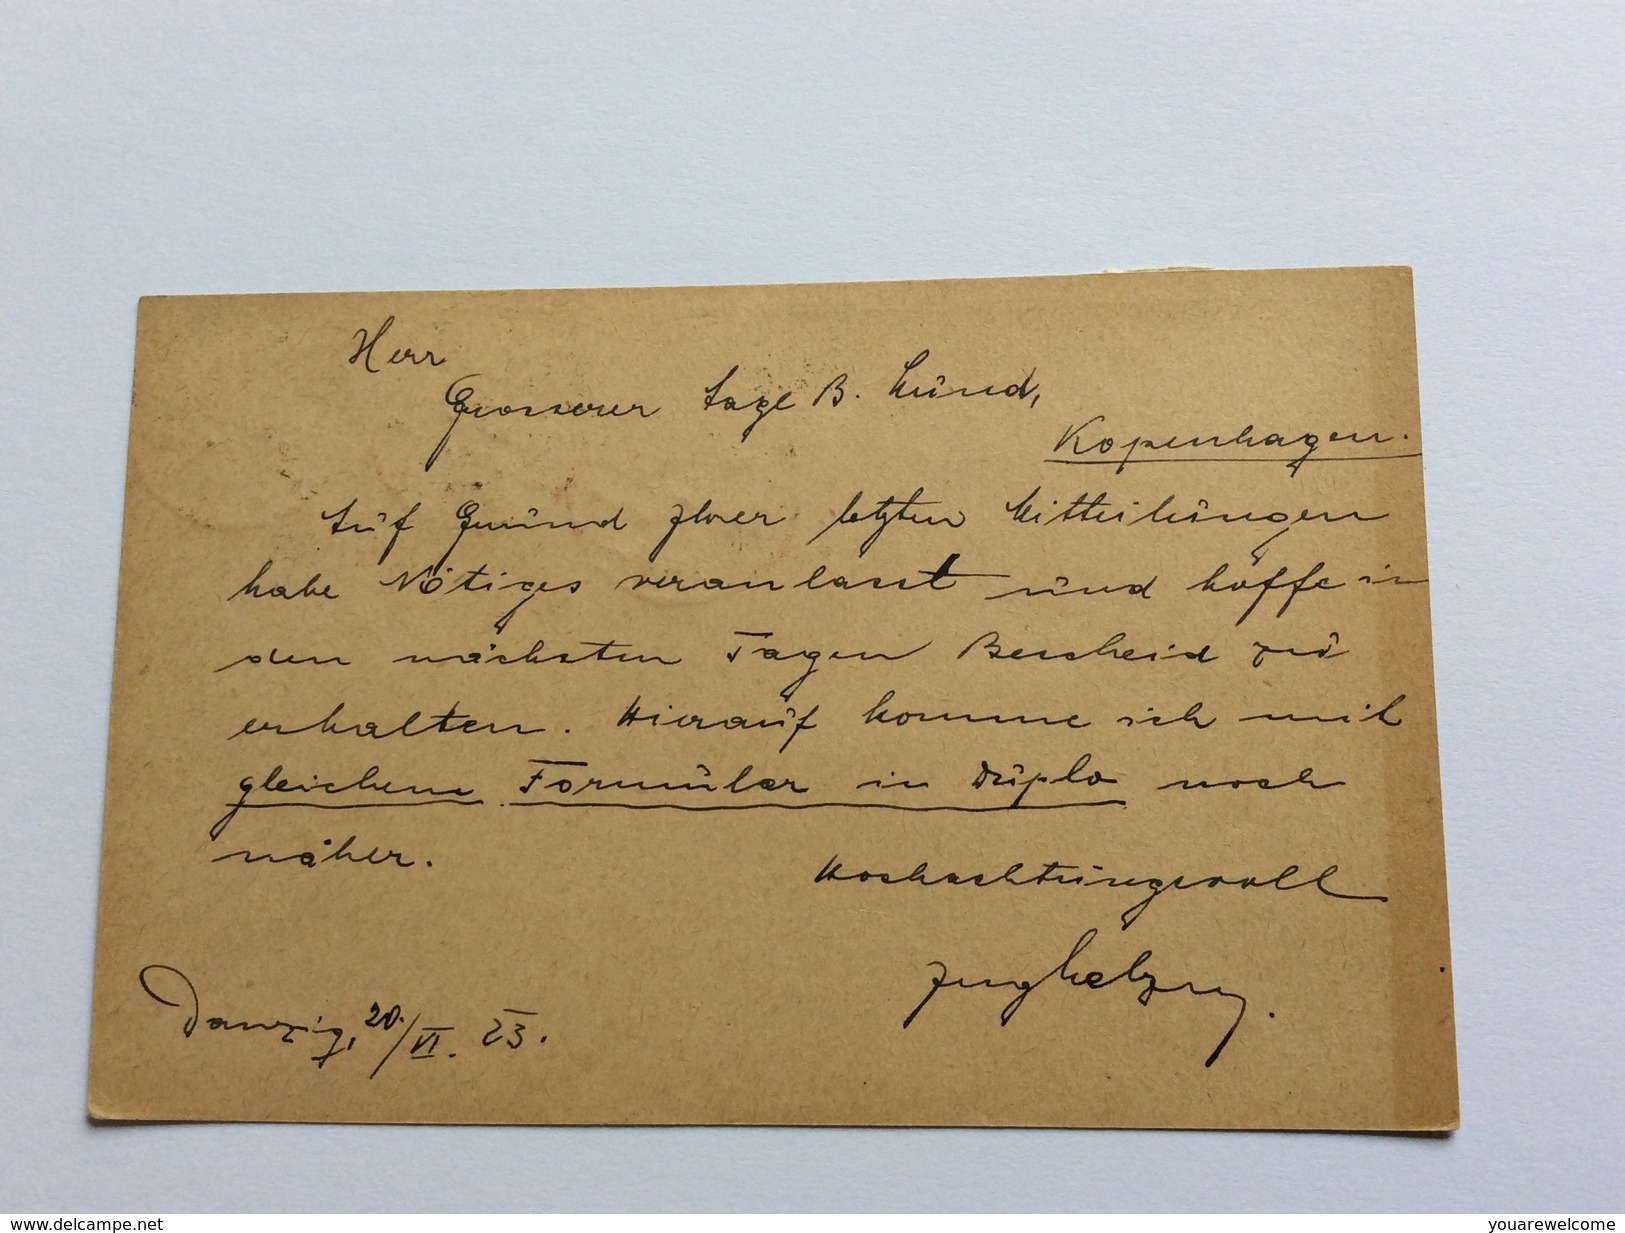 Herr
Grosserer Aage B. Lund,
Kopenhagen.
Auf Grund Ihrer letzten Mitteilungen
habe Nötiges veranlasst und hoffe in
den nächsten Tagen Bescheid zu
erhalten. Hierauf komme ich mit
gleichem Formular in Duplo noch
näher.
Hochachtungsvoll
Danzig, 20./VI. 23.
www.delcampe.net
youarewelcome